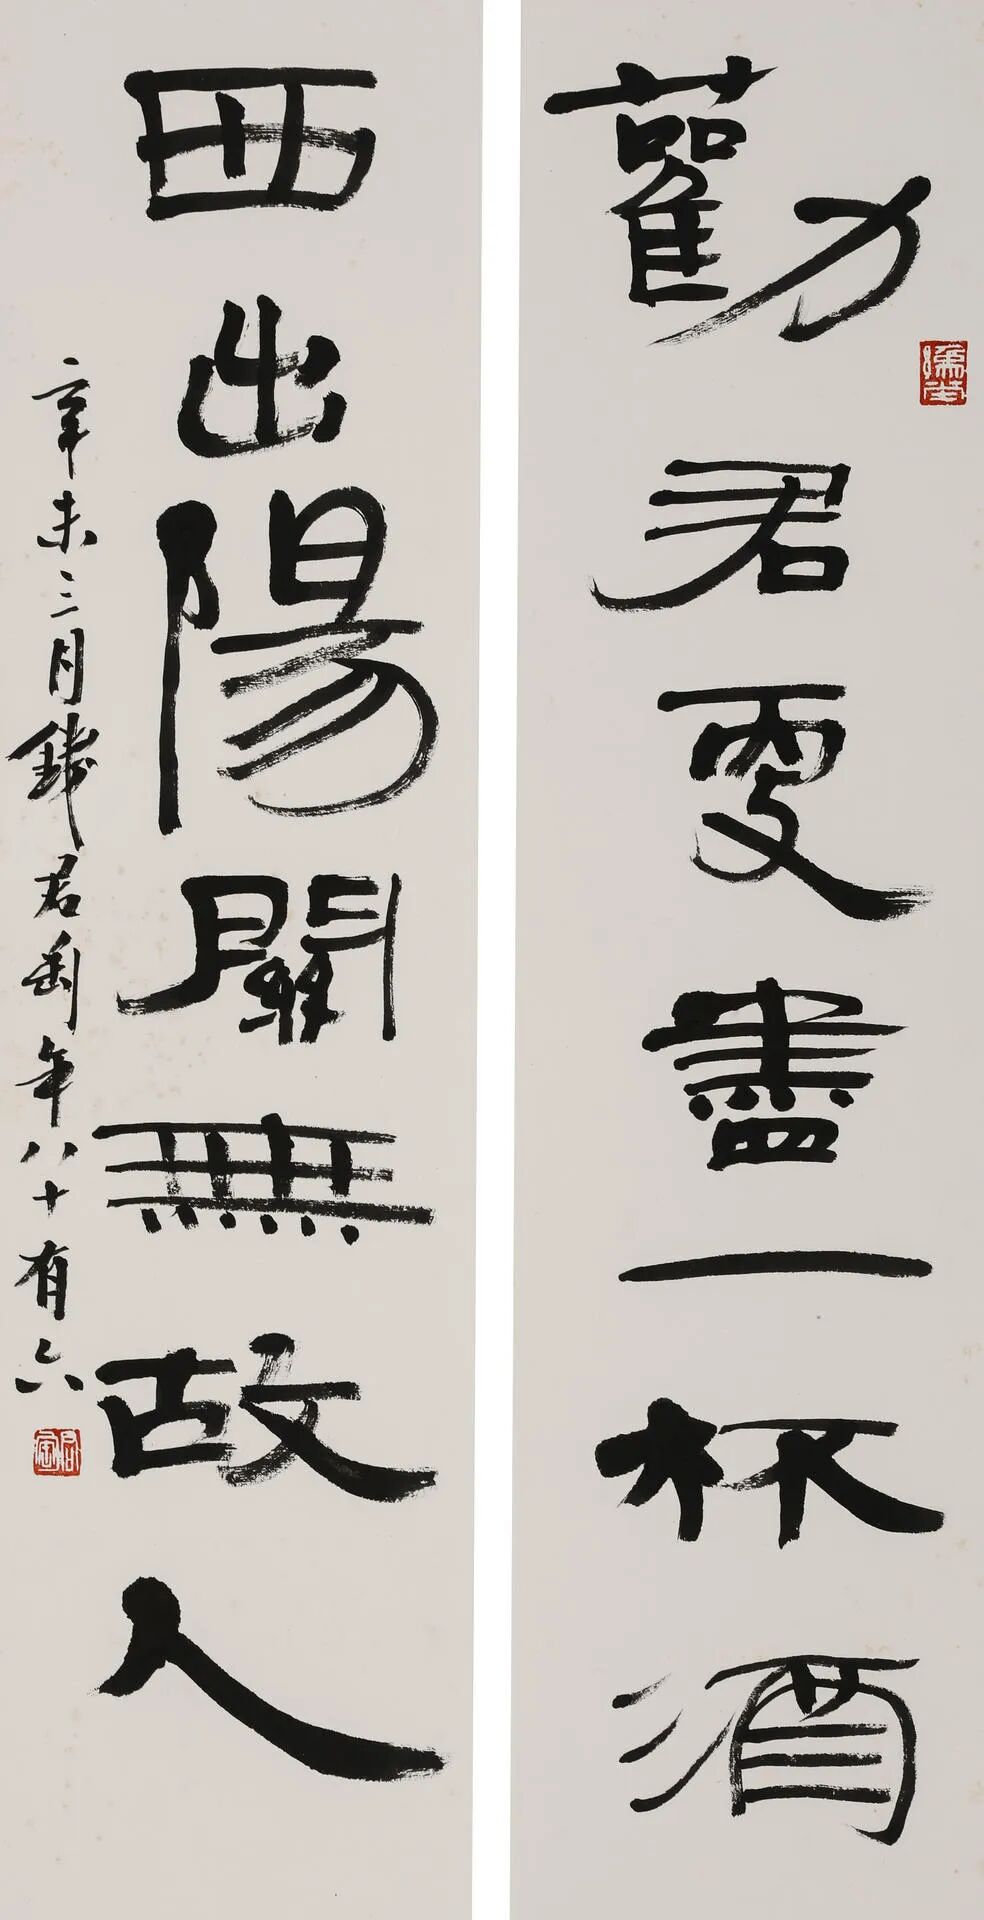 勸君更盡一杯酒
西出陽關無故人
辛未三月錢君匋年八十有六